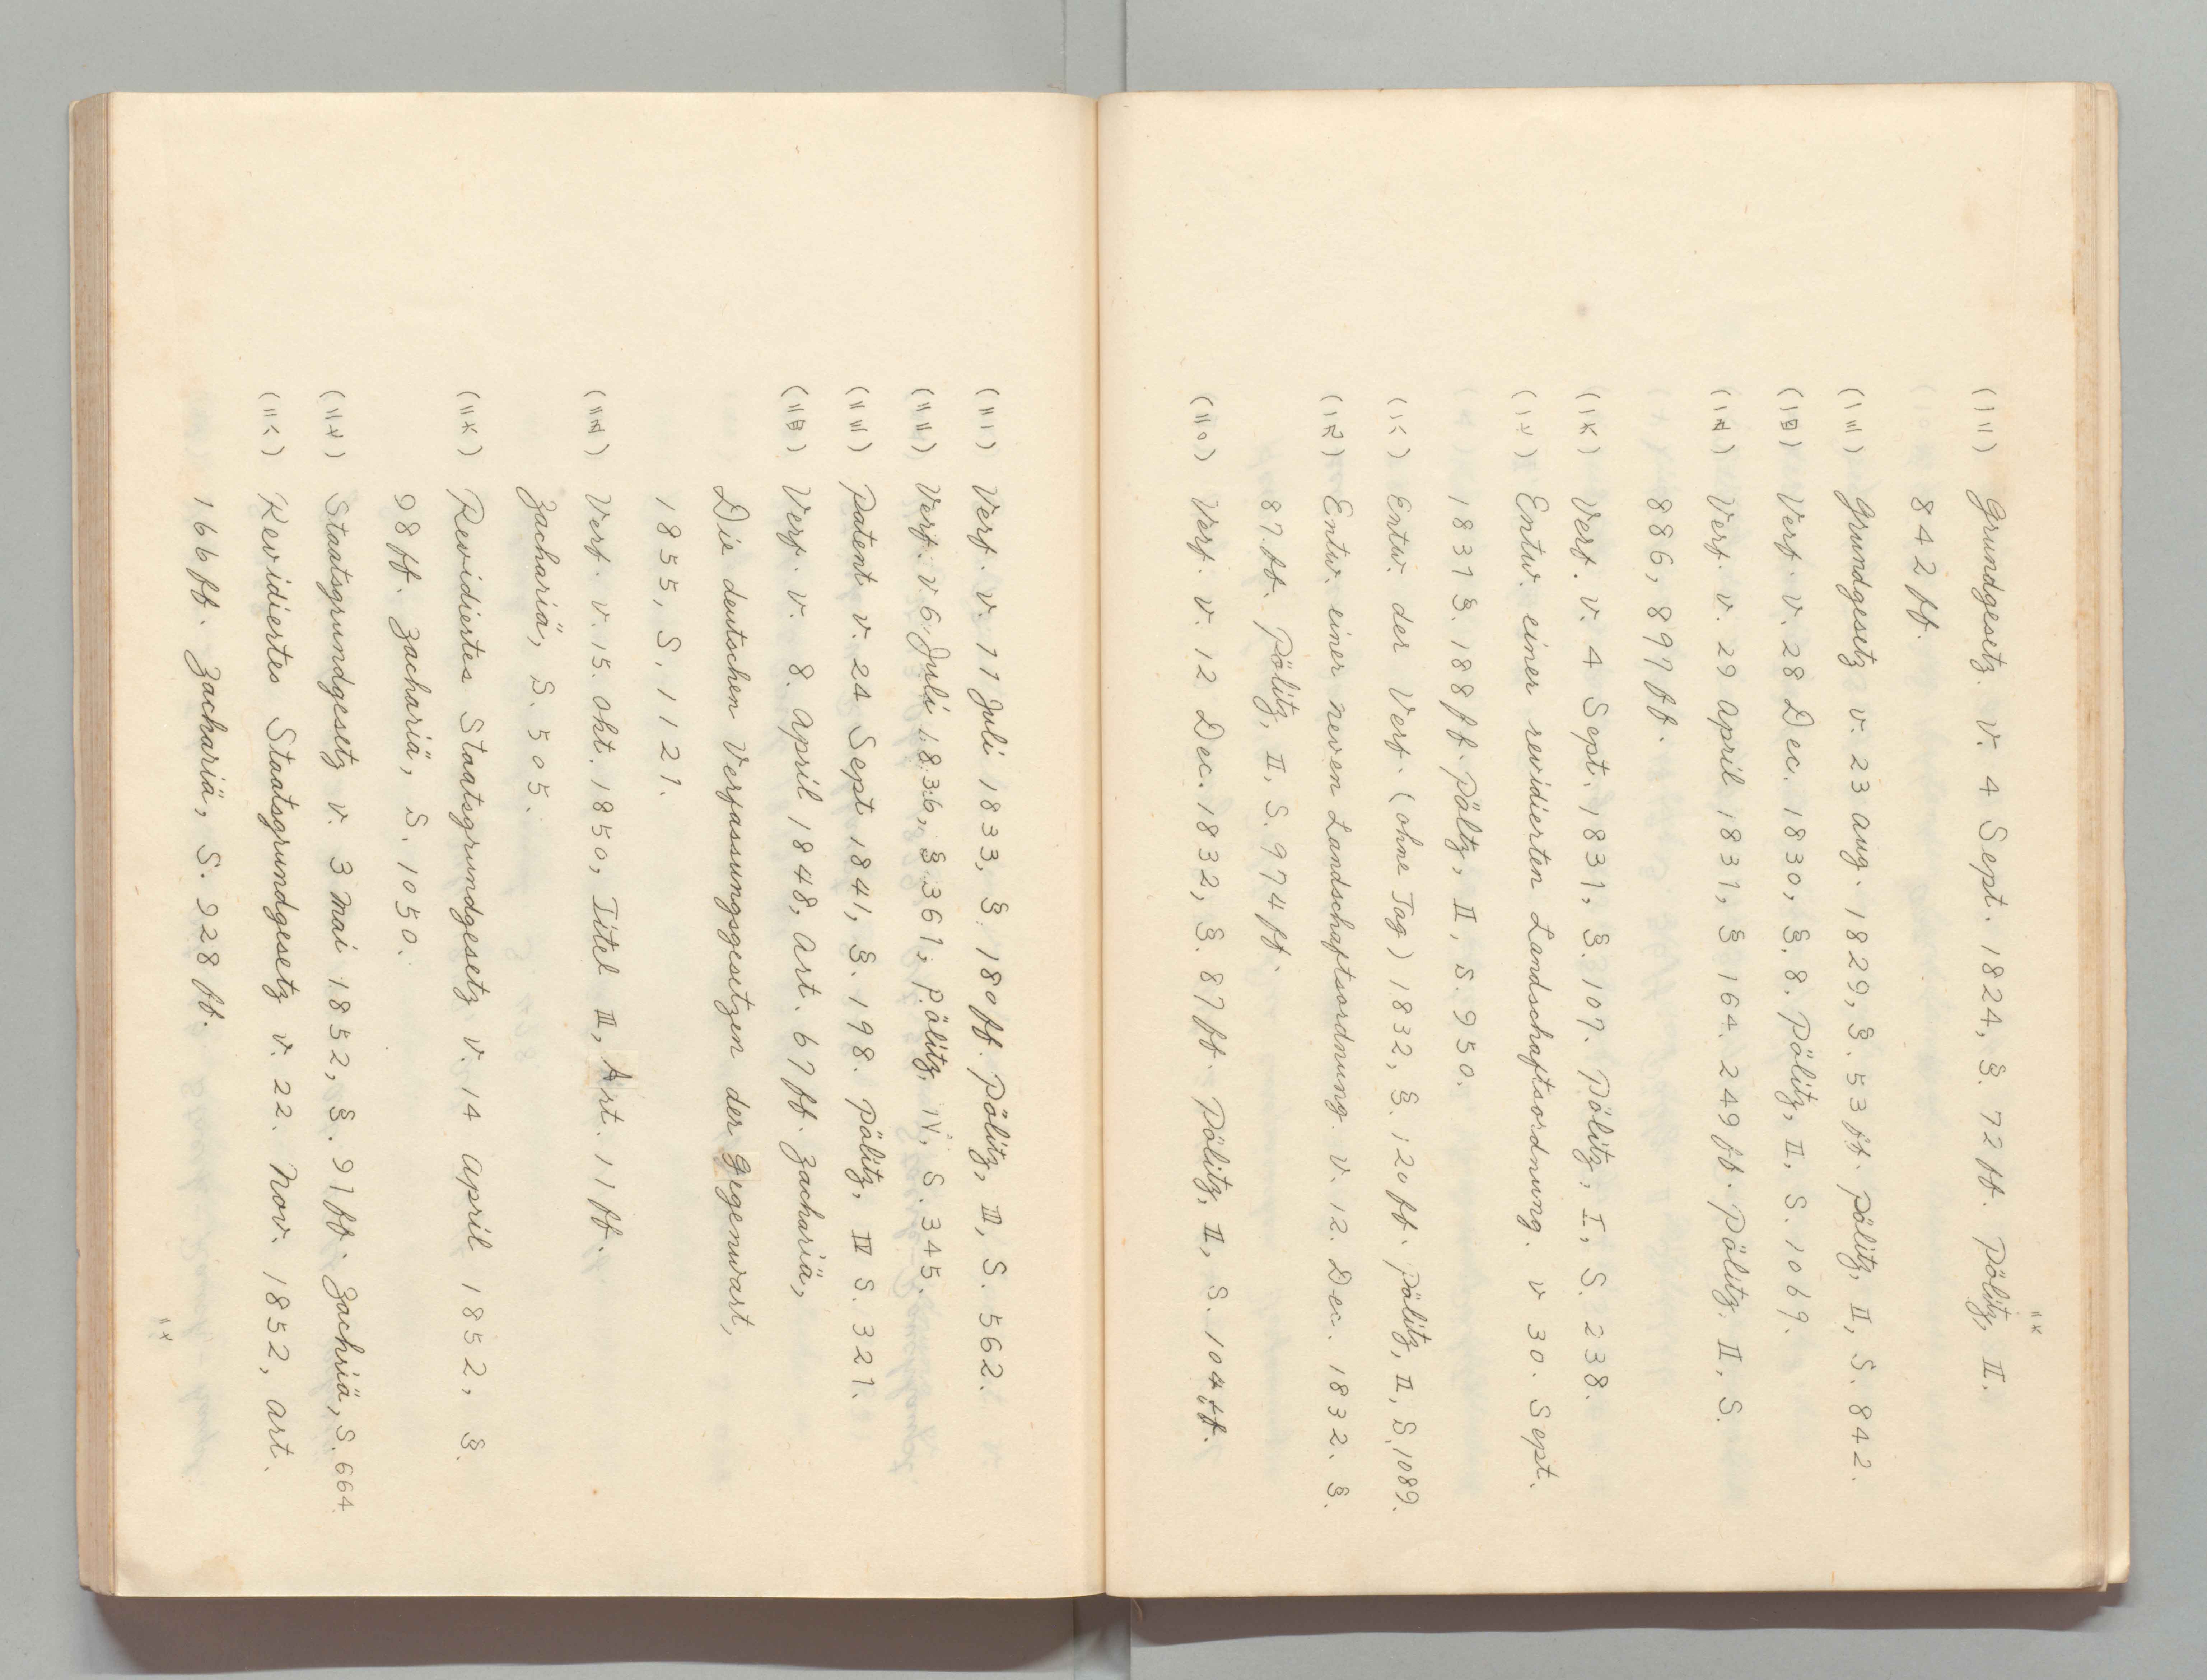 二六
(一二) Grundgesetz. v. 4 Sept. 1824, §. 72 ff. Pölitz, II.
842 ff.
(一三) Grundgesetz v. 23 aug. 1829, §. 53 ff. Pölitz, II, S. 842.
(一四) Verf. v. 28 Dec. 1830, §. 8. Pölitz, II. S. 1069.
(一五) Verf. v. 29 april 1831, § 164. 249 ff. Pölitz. II, S.
886, 897 ff.
(一六) Verf. v. 4 Sept. 1831, §. 107. Pölitz, I, S. 238.
(一七) Entw. einer revidierten Landschaftsordnung. v 30. Sept.
1831 §. 188 ff. Pöltz, II, S. 950.
(一八) Entw. der Verf. (ohne Tag) 1832, §. 120 ff. Pölitz, II, S. 1089.
(一九) Entw. einer neuen Landschaftsordnung. v. 12. Dec. 1832. §.
87. ff. Pölitz, II. S. 974 ff.
(二〇) Verf. v. 12 Dec. 1832, §. 87 ff. Pölitz, II, S. 104 ff.
(二一) Verf. v. 11 Juli 1833, §. 180 ff. Pölitz, III, S. 562.
(二二) Verf. v. 6. Juli 1836, § 361, Pölitz, IV, S. 345.
(二三) Patent v. 24 Sept 1841, §. 198. Pölitz, IV S. 321.
(二四) Verf. v. 8. april 1848, art. 67 ff. Zachariä,
Die deutschen Verfassungsgesetzen der Gegenwart,
1855, S. 1121.
(二五) Verf. v. 15. okt. 1850, Titel III, Art. 11 ff.
Zachariä, S. 505.
(二六) Revidiertes Staatsgrundgesetz v. 14 april 1852, §.
98 ff. Zachariä, S. 1050.
(二七) Staatsgrundgesetz v. 3 Mai 1852, §. 91 ff. Zachriä, S. 664.
(二八) Revidiertes Staatsgrundgesetz v. 22. Nov. 1852, art.
166 ff. Zachariä, S. 928 ff.
二七